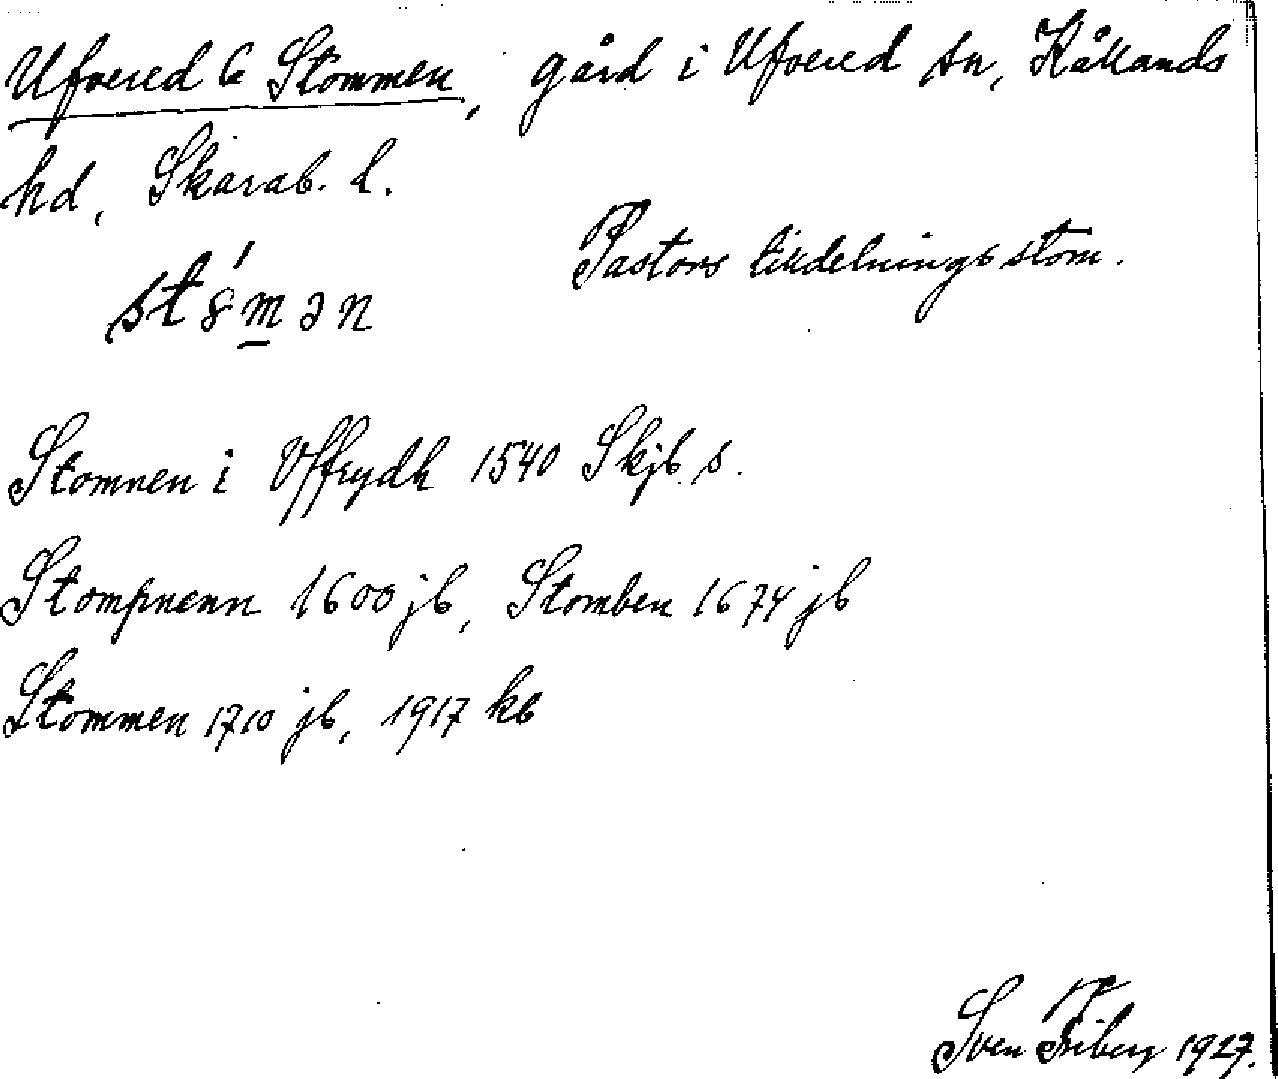 Ufvered C Stommen, gård i Ufvered sn, Kållands
hd, Skarab. l.
st8̍m̲ən
Pastors likdelningsstom.
Stomnen i Uffrydh 1540 Skjb. s.
Stompnenn 1600 jb, Stomben 1674 jb
Stommen 1710 jb, 1917 kb
Sven Friberg 1927.